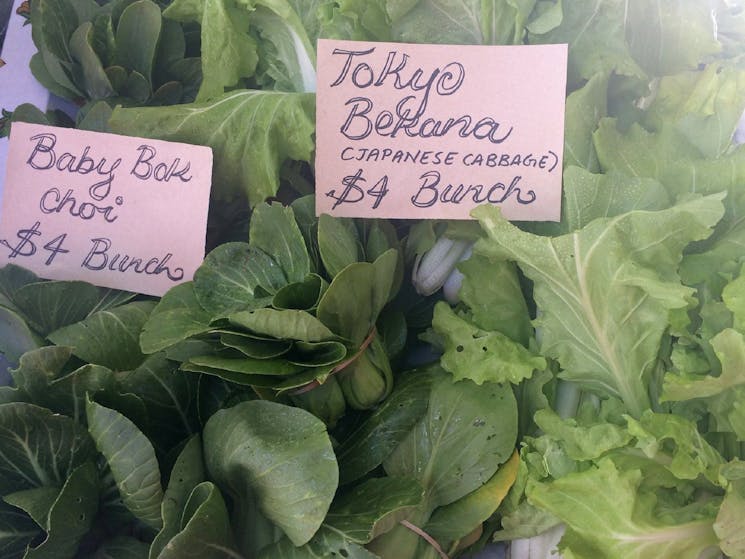 Baby Bok
choi
$4 Bunch
Tokyo
Bekana
(JAPANESE CABBAGE)
$4 Bunch